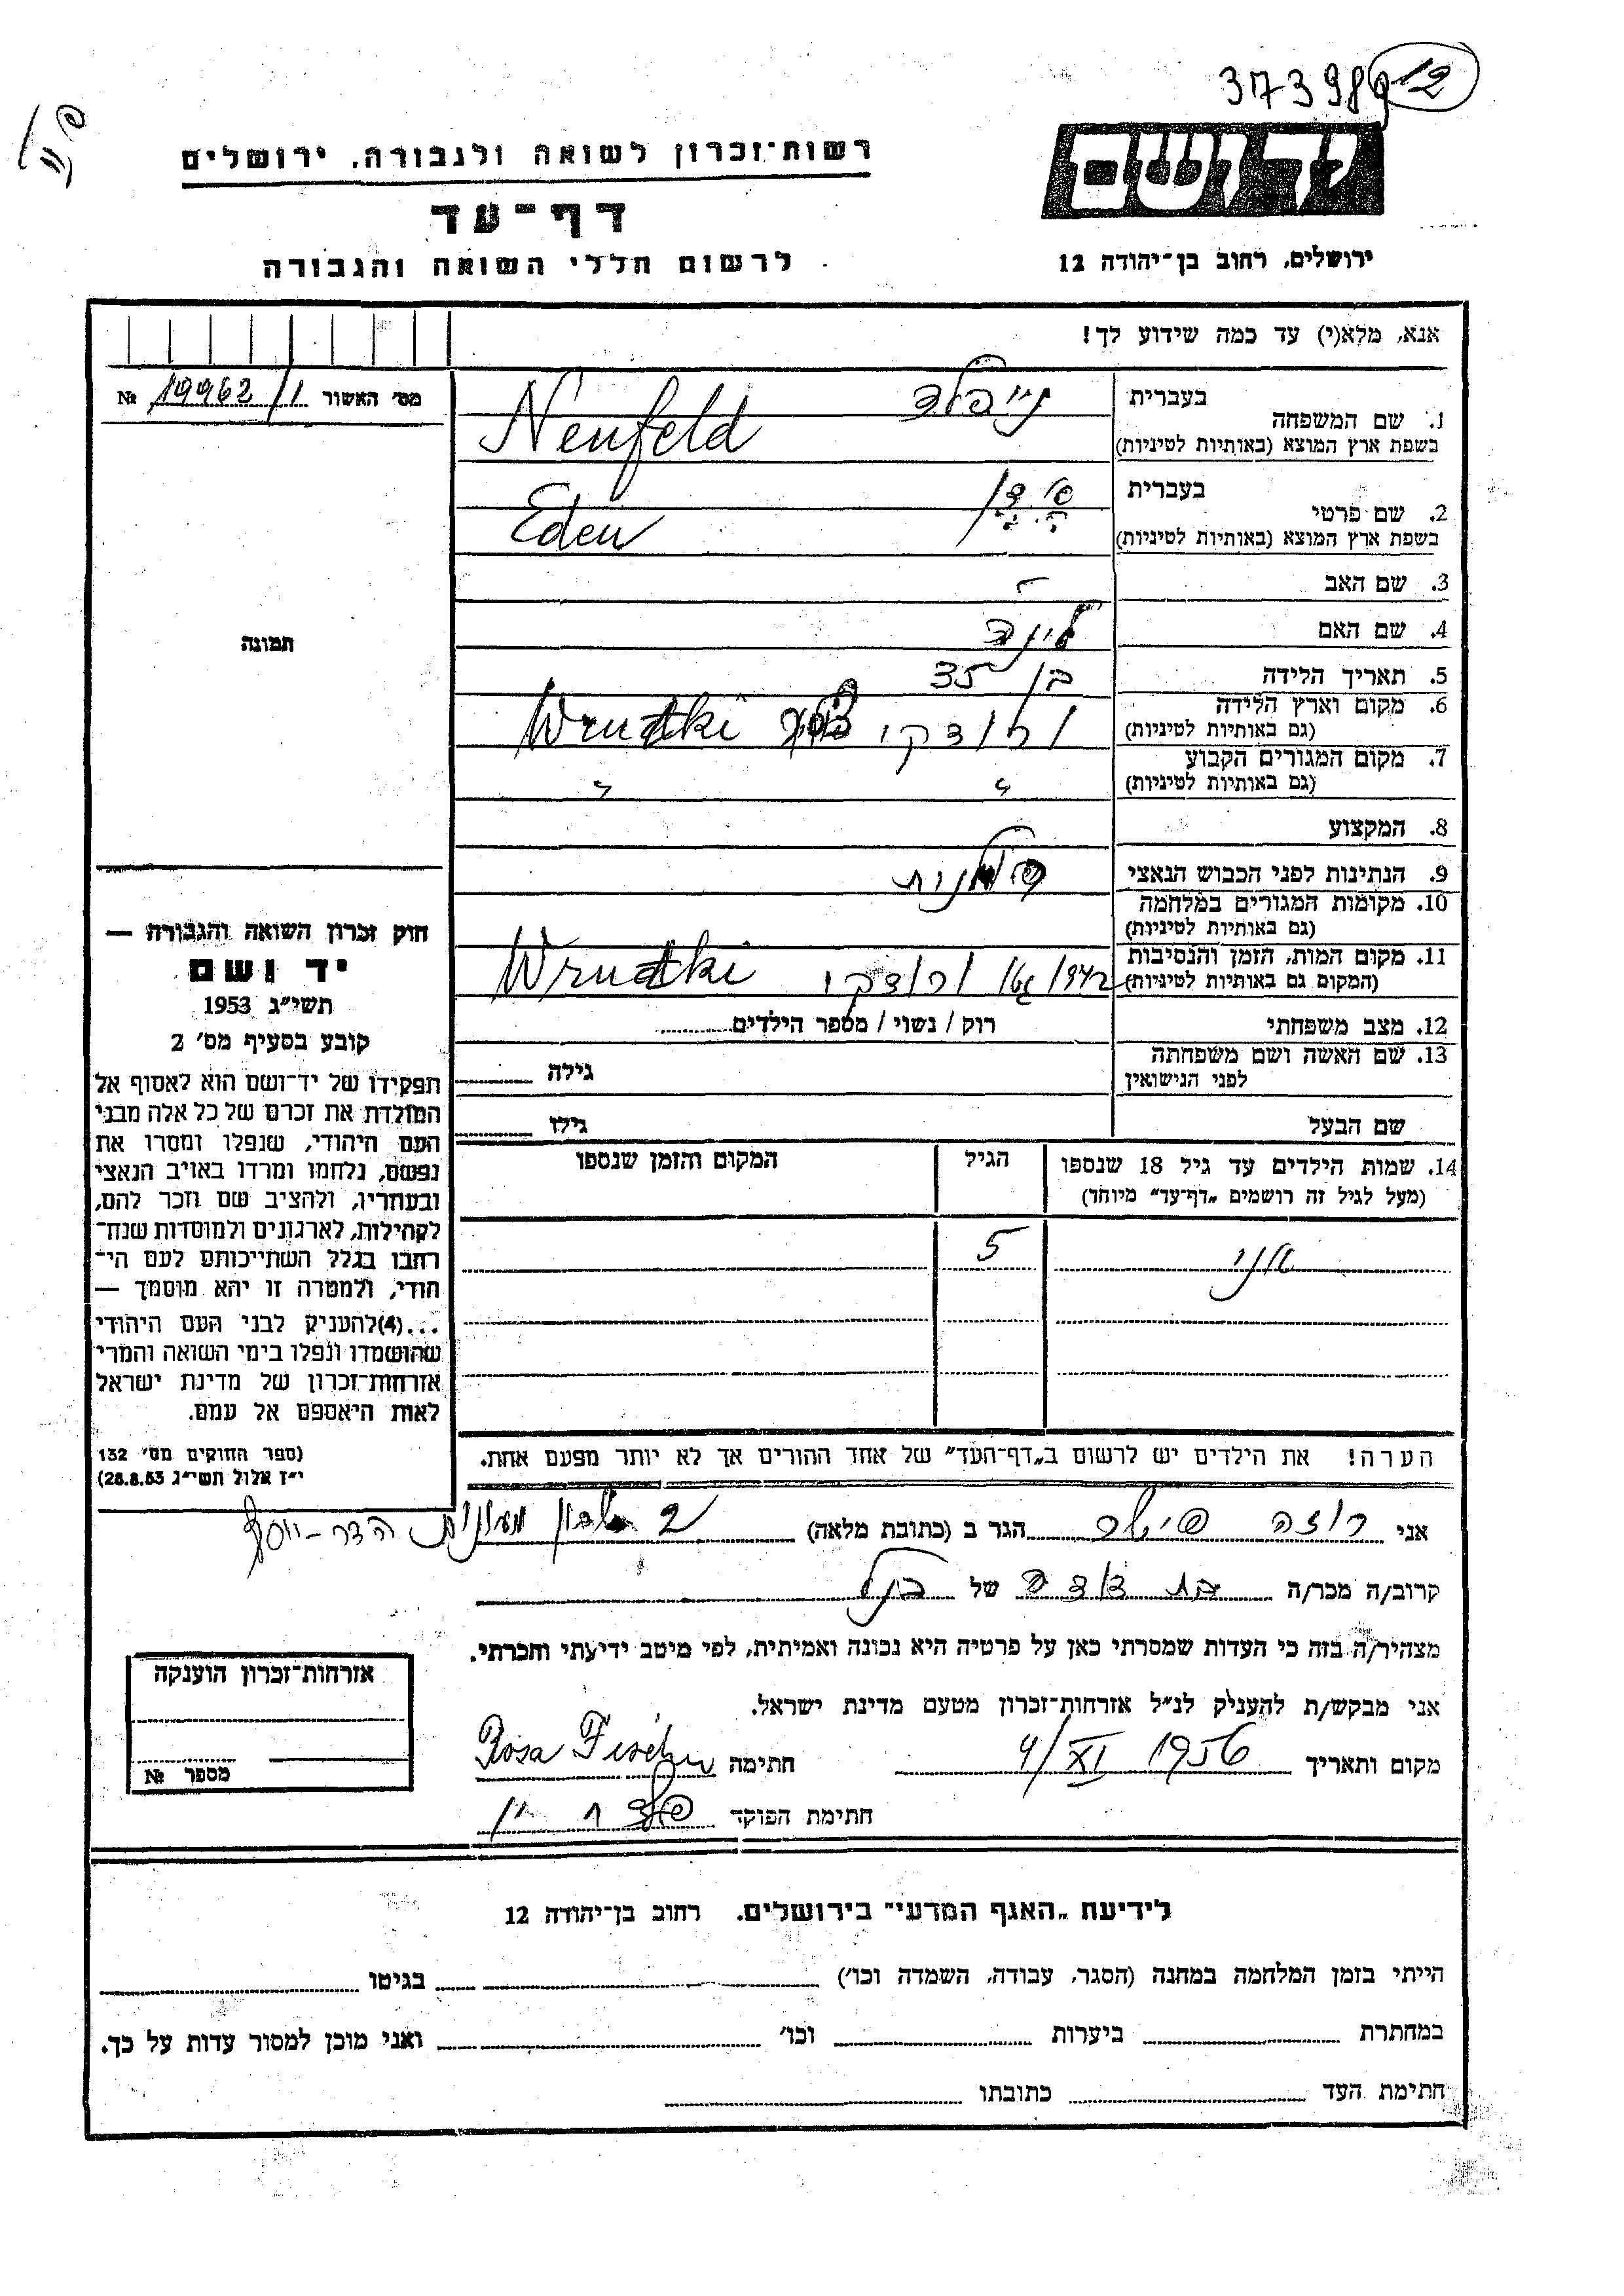 373989 12
רשות־זכרון לשואה ולגבורה, ירושלים
דף־עד
לרשום חללי השואה והגבורה
ידושם
ירושלים, רחוב בן־יהודה 12
אנא, מלא(י) עד כמה שידוע לך!
מס׳ האשור 19962/1 №
תמונה
1. שם המשפחה
בעברית נייפלד
בשפת ארץ המוצא (באותיות לטיניות) Neufeld
2. שם פרטי
בעברית
בשפת ארץ המוצא (באותיות לטיניות) Eden
3. שם האב -
4. שם האם לינה
5. תאריך הלידה בן 35
6. מקום וארץ הלידה
(גם באותיות לטיניות) ורודקי Wrudki
7. מקום המגורים הקבוע
(גם באותיות לטיניות) " "
8. המקצוע
9. הנתינות לפני הכבוש הנאצי פולנית
10. מקומות המגורים במלחמה
(גם באותיות לטיניות)
11. מקום המות, הזמן והנסיבות
(המקום גם באותיות לטיניות) 1942 ורודקי Wrudki
12. מצב משפחתי רוק / נשוי / מספר הילדים
13. שם האשה ושם משפחתה
לפני הנישואין גילה
שם הבעל גילו
14. שמות הילדים עד גיל 18 שנספו
(מעל לגיל זה רושמים „דף־עד״ מיוחד)
הגיל
המקום והזמן שנספו
5
הערה! את הילדים יש לרשום ב„דף־העד״ של אחד ההורים אך לא יותר מפעם אחת.
חוק זכרון השואה והגבורה —
יד ושם
תשי״ג 1953
קובע בסעיף מס׳ 2
תפקידו של יד־ושם הוא לאסוף אל
המולדת את זכרם של כל אלה מבני
העם היהודי, שנפלו ומסרו את
נפשם, נלחמו ומרדו באויב הנאצי
ובעוזריו, ולהציב שם וזכר להם,
לקהילות, לארגונים ולמוסדות שנח־
רבו בגלל השתייכותם לעם הי־
הודי, ולמטרה זו יהא מוסמך —
...(4) להעניק לבני העם היהודי
שהושמדו ונפלו בימי השואה והמרי
אזרחות־זכרון של מדינת ישראל
לאות היאספם אל עמם.
(ספר החוקים מס׳ 132
י״ז אלול תשי״ג 28.8.53)
אני רוזה פישר הגר ב (כתובת מלאה) מעונות הדר-יוסף
קרוב/ה מכר/ה בת דודה של הנ״ל
מצהיר/ה בזה כי העדות שמסרתי כאן על פרטיה היא נכונה ואמיתית, לפי מיטב ידיעתי והכרתי.
אני מבקש/ת להעניק לנ״ל אזרחות־זכרון מטעם מדינת ישראל.
מקום ותאריך 4/XI 1956 חתימה Rosa Fischer
חתימת הפוקד
אזרחות־זכרון הוענקה
מספר №
לידיעת „האגף המדעי״ בירושלים. רחוב בן־יהודה 12
הייתי בזמן המלחמה במחנה (הסגר, עבודה, השמדה וכו׳) בגיטו
במחתרת ביערות וכו׳ ואני מוכן למסור עדות על כך.
חתימת העד כתובתו